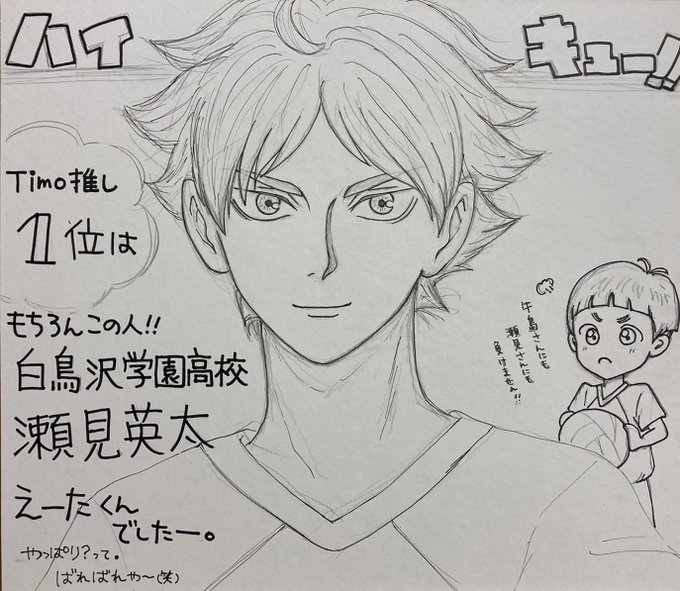 ハイキュー!!
Timo推し
1位は
もちろんこの人!!
白鳥沢学園高校
瀬見英太
えーたくん
でしたー。
やっぱり?って。
ばればれや〜(笑)
牛島さんにも
瀬見さんにも
負けません!!